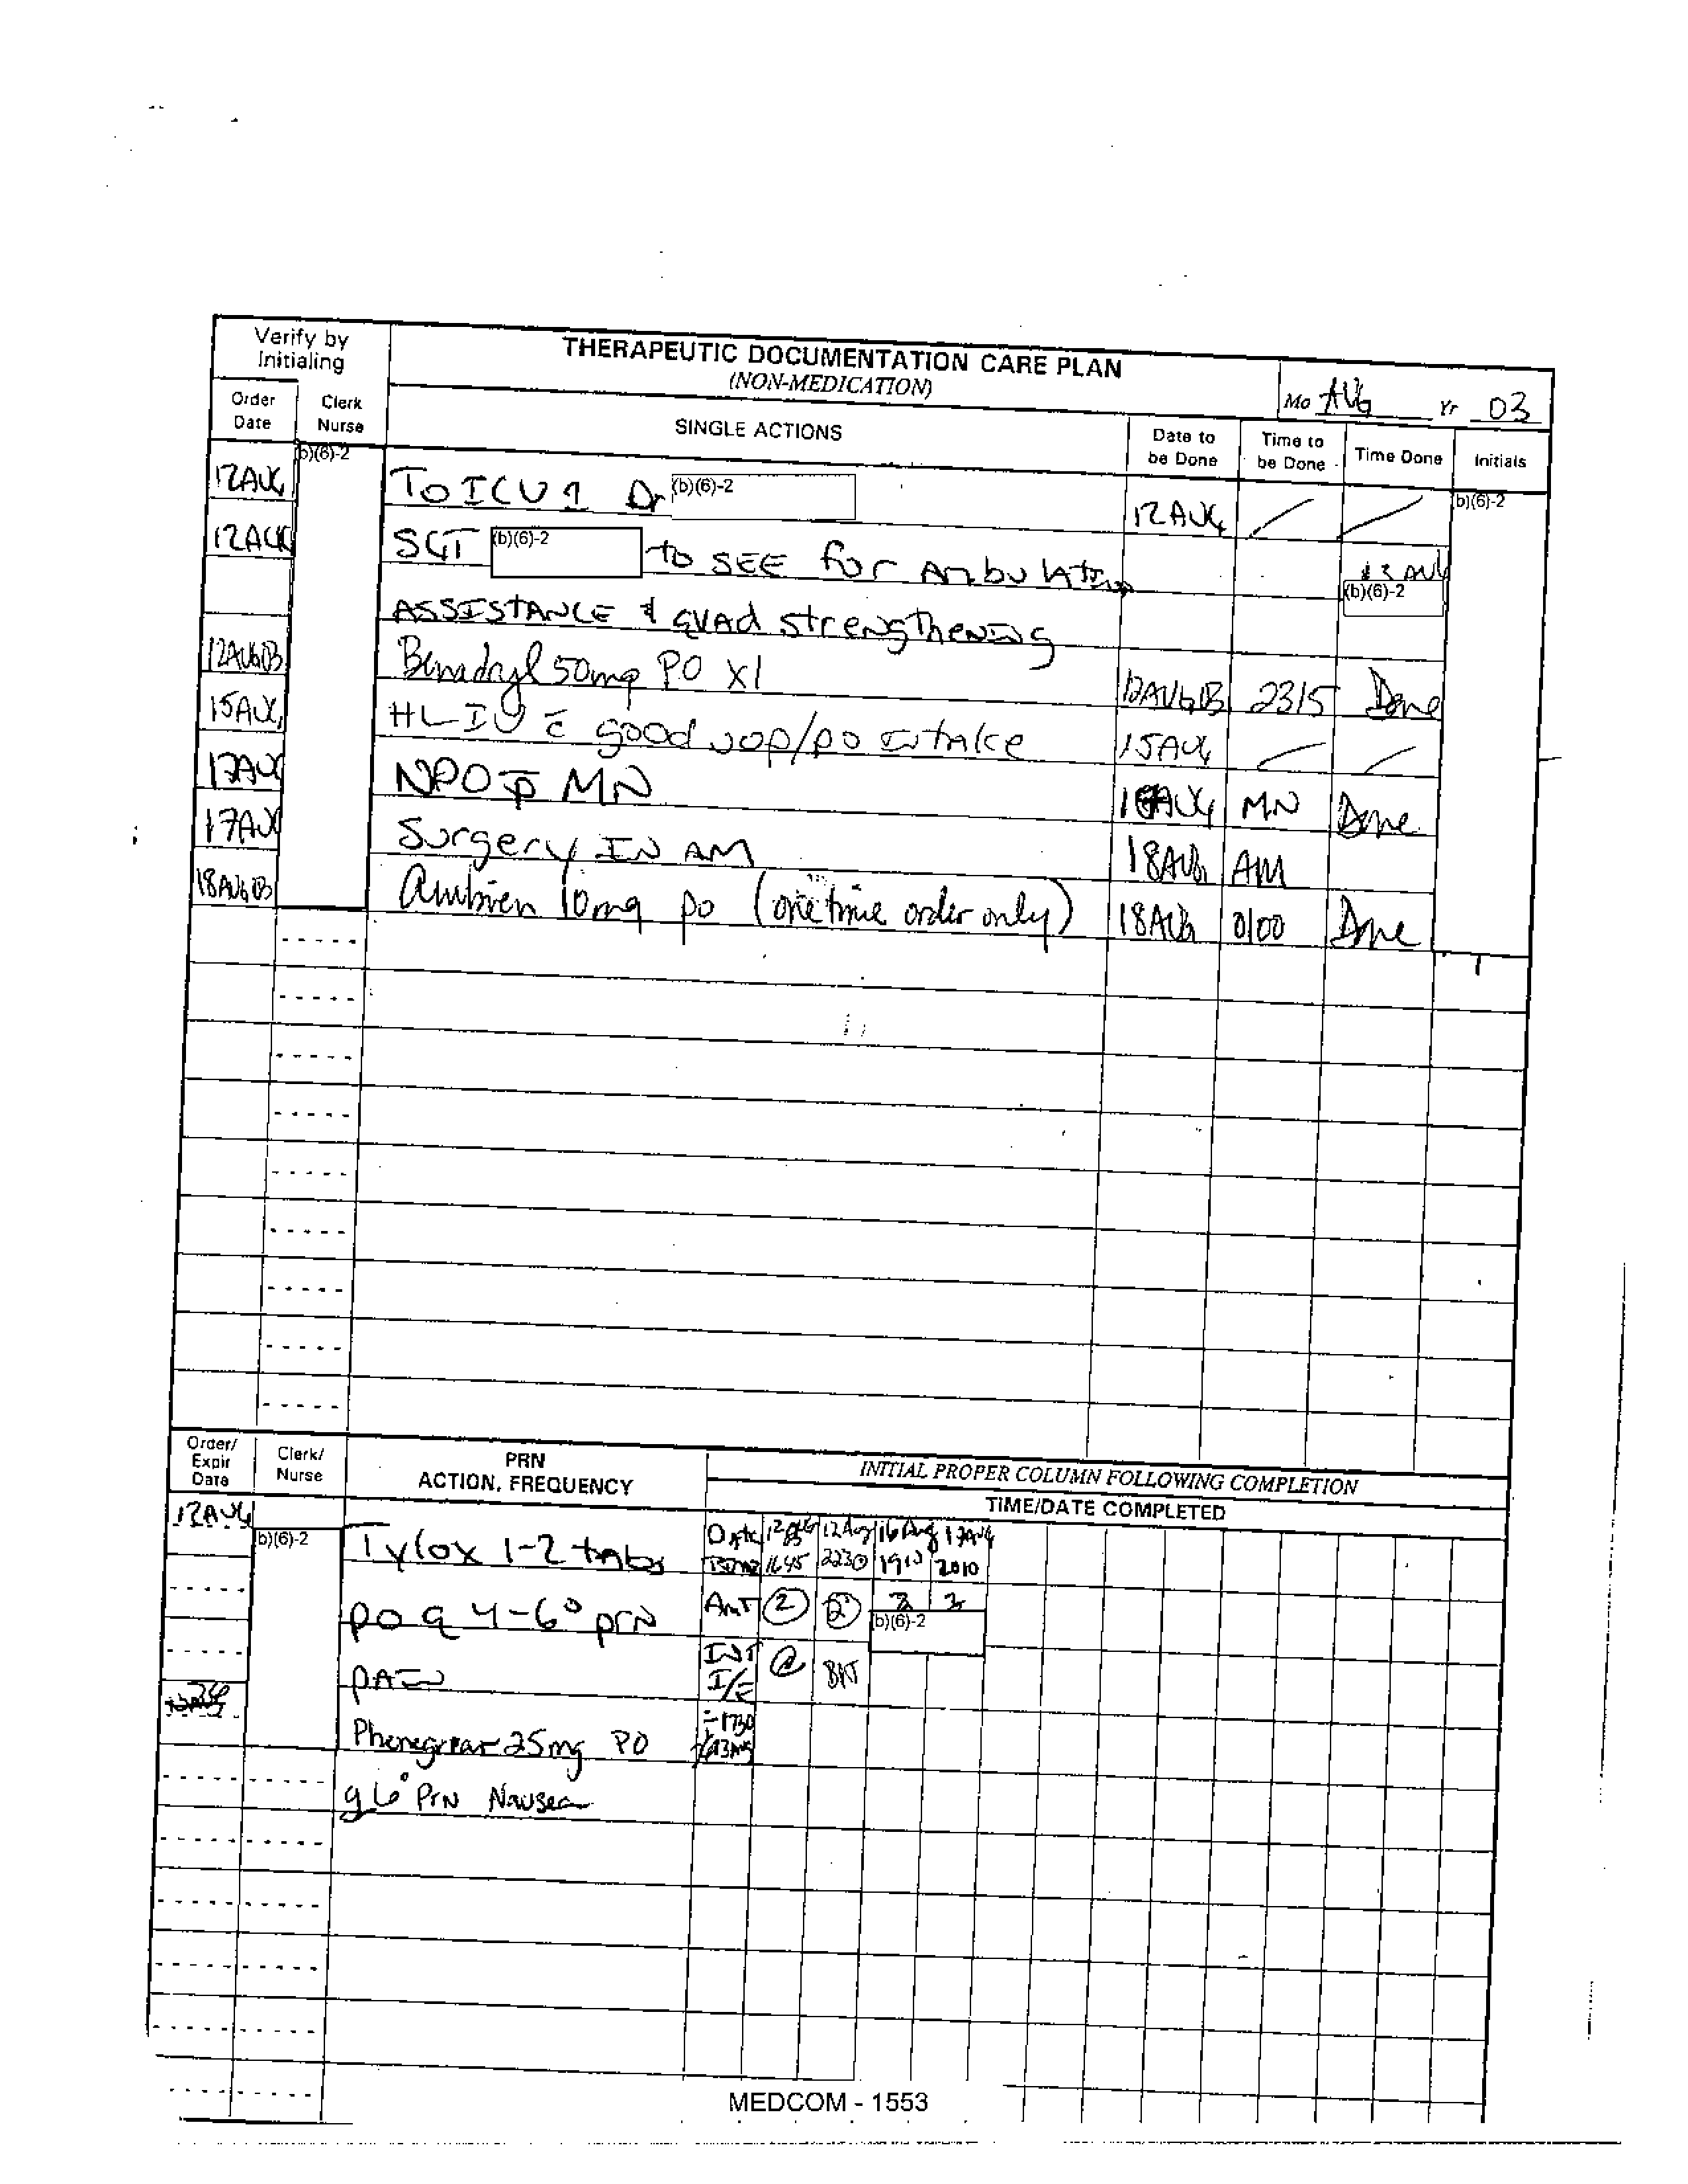 Verify by Initialing
THERAPEUTIC DOCUMENTATION CARE PLAN
(NON-MEDICATION)
Mo AUG Yr 03
Order Date
Clerk Nurse
SINGLE ACTIONS
Date to be Done
Time to be Done
Time Done
Initials
(b)(6)-2
(b)(6)-2
12AUG TO ICU 1 Dr (b)(6)-2 12AUG / /
12AUG SGT (b)(6)-2 to SEE for Ambulation 13 AUG
(b)(6)-2
ASSISTANCE & QUAD strengthening
12AUG03 Benadryl 50mg PO x1 12AUG03 2315 Done
15AUG HL IV c̄ good uop/po intake 15AUG / /
17AUG NPO p̄ MN AUG MN Done
17AUG Surgery IN AM 18AUG AM
18AUG03 Ambien 10mg po (one time order only) 18AUG 0100 Done
Order/ Expir Date
Clerk/ Nurse
PRN ACTION, FREQUENCY
INITIAL PROPER COLUMN FOLLOWING COMPLETION
TIME/DATE COMPLETED
12AUG (b)(6)-2 Tylox 1-2 tabs Date 12AUG 12Aug 16Aug 17AUG
Time 1645 2230 1910 2010
po q 4-6° prN Amt 2 2 2 2
(b)(6)-2
PAIN INT I/E
Phenergan 25mg PO
q6° PrN Nausea
MEDCOM - 1553